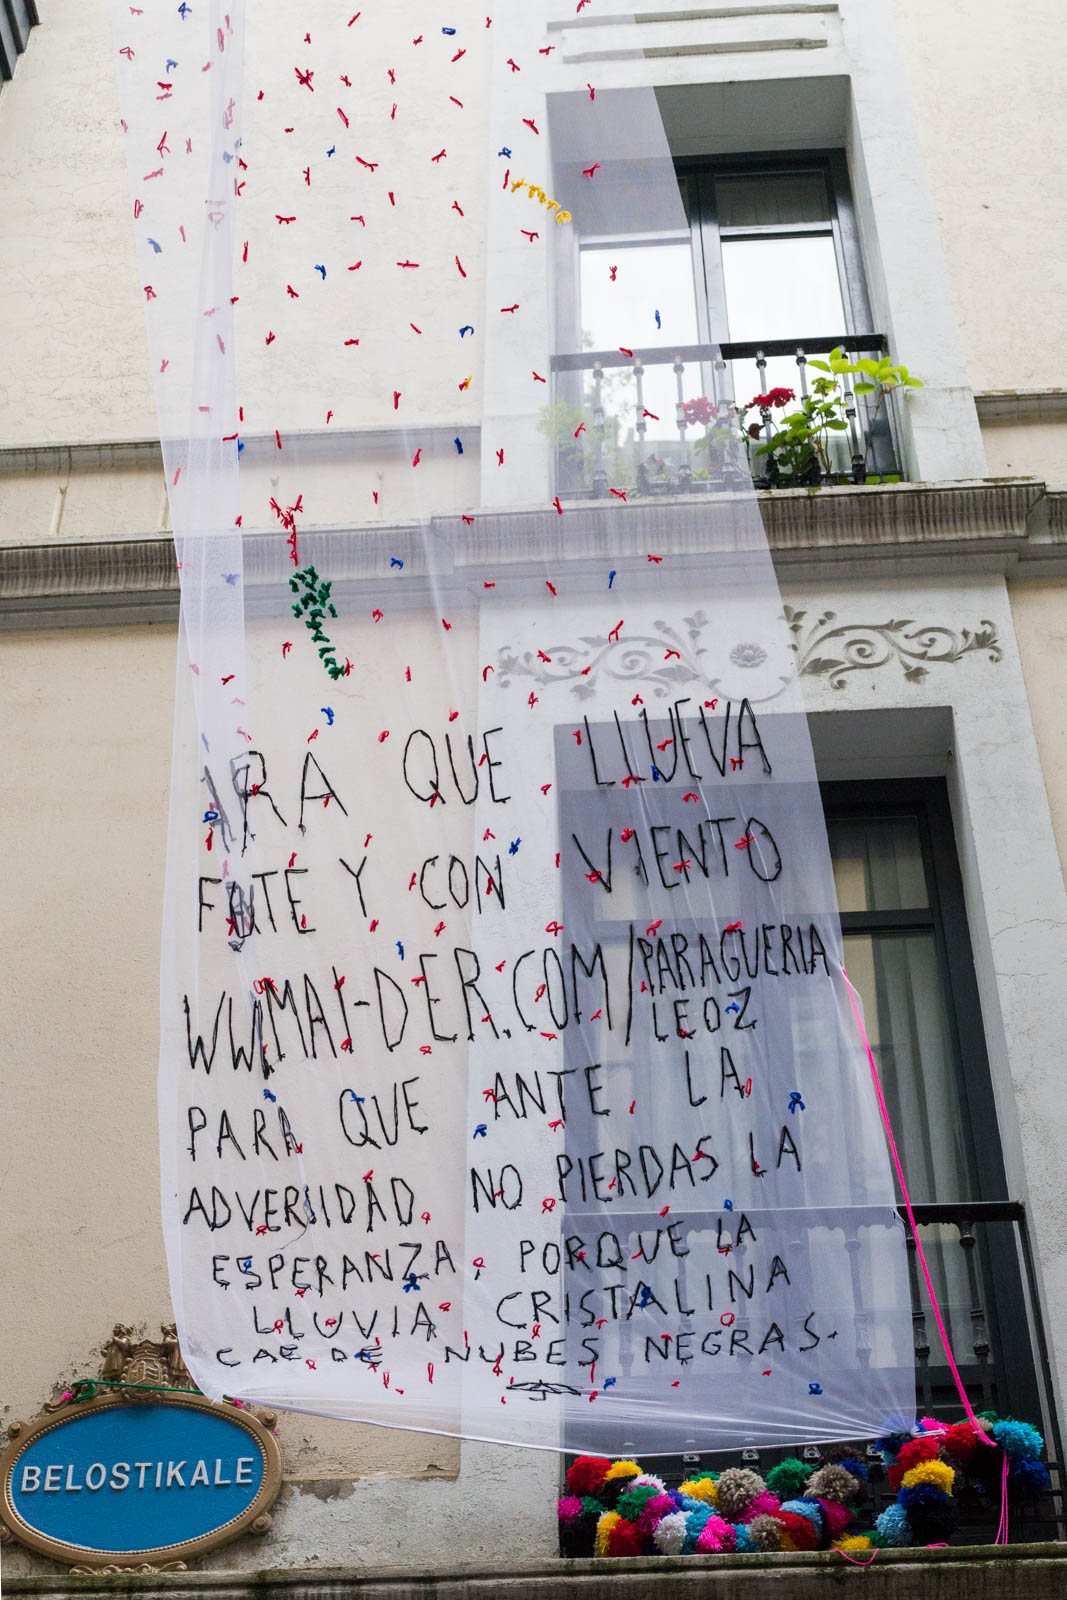 QUE LLUEVA
Y CON VIENTO
WWW.MAI-DER.COM/PARAGUERIA
LEOZ
PARA QUE ANTE LA
ADVERSIDAD NO PIERDAS LA
ESPERANZA, PORQUE LA
LLUVIA CRISTALINA
CAE DE NUBES NEGRAS.
BELOSTIKALE